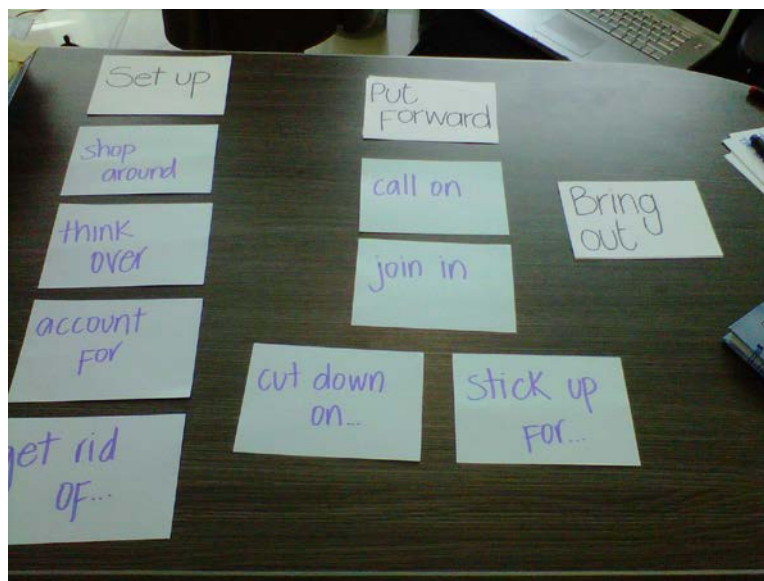 Set up
shop
around
think
over
account
for
get rid
of...
Put
Forward
call on
join in
cut down
on...
stick up
for...
Bring
out